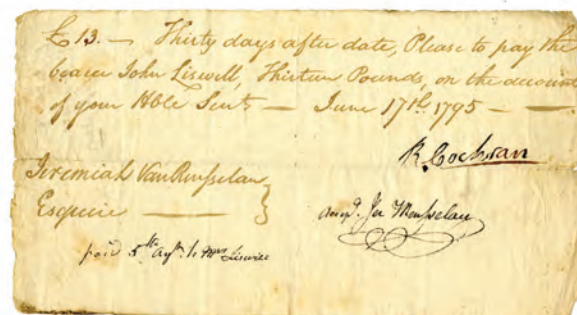 £ 13. — Thirty days after date, Please to pay the
bearer John Liswell, Thirteen Pounds, on the account
of your Hble Servt — June 17th. 1795 —
R. Cochran
Jeremiah VanRensselaer
Esquire —
Jer VRensselaer
paid 5th Augt. to Mrs Liswell